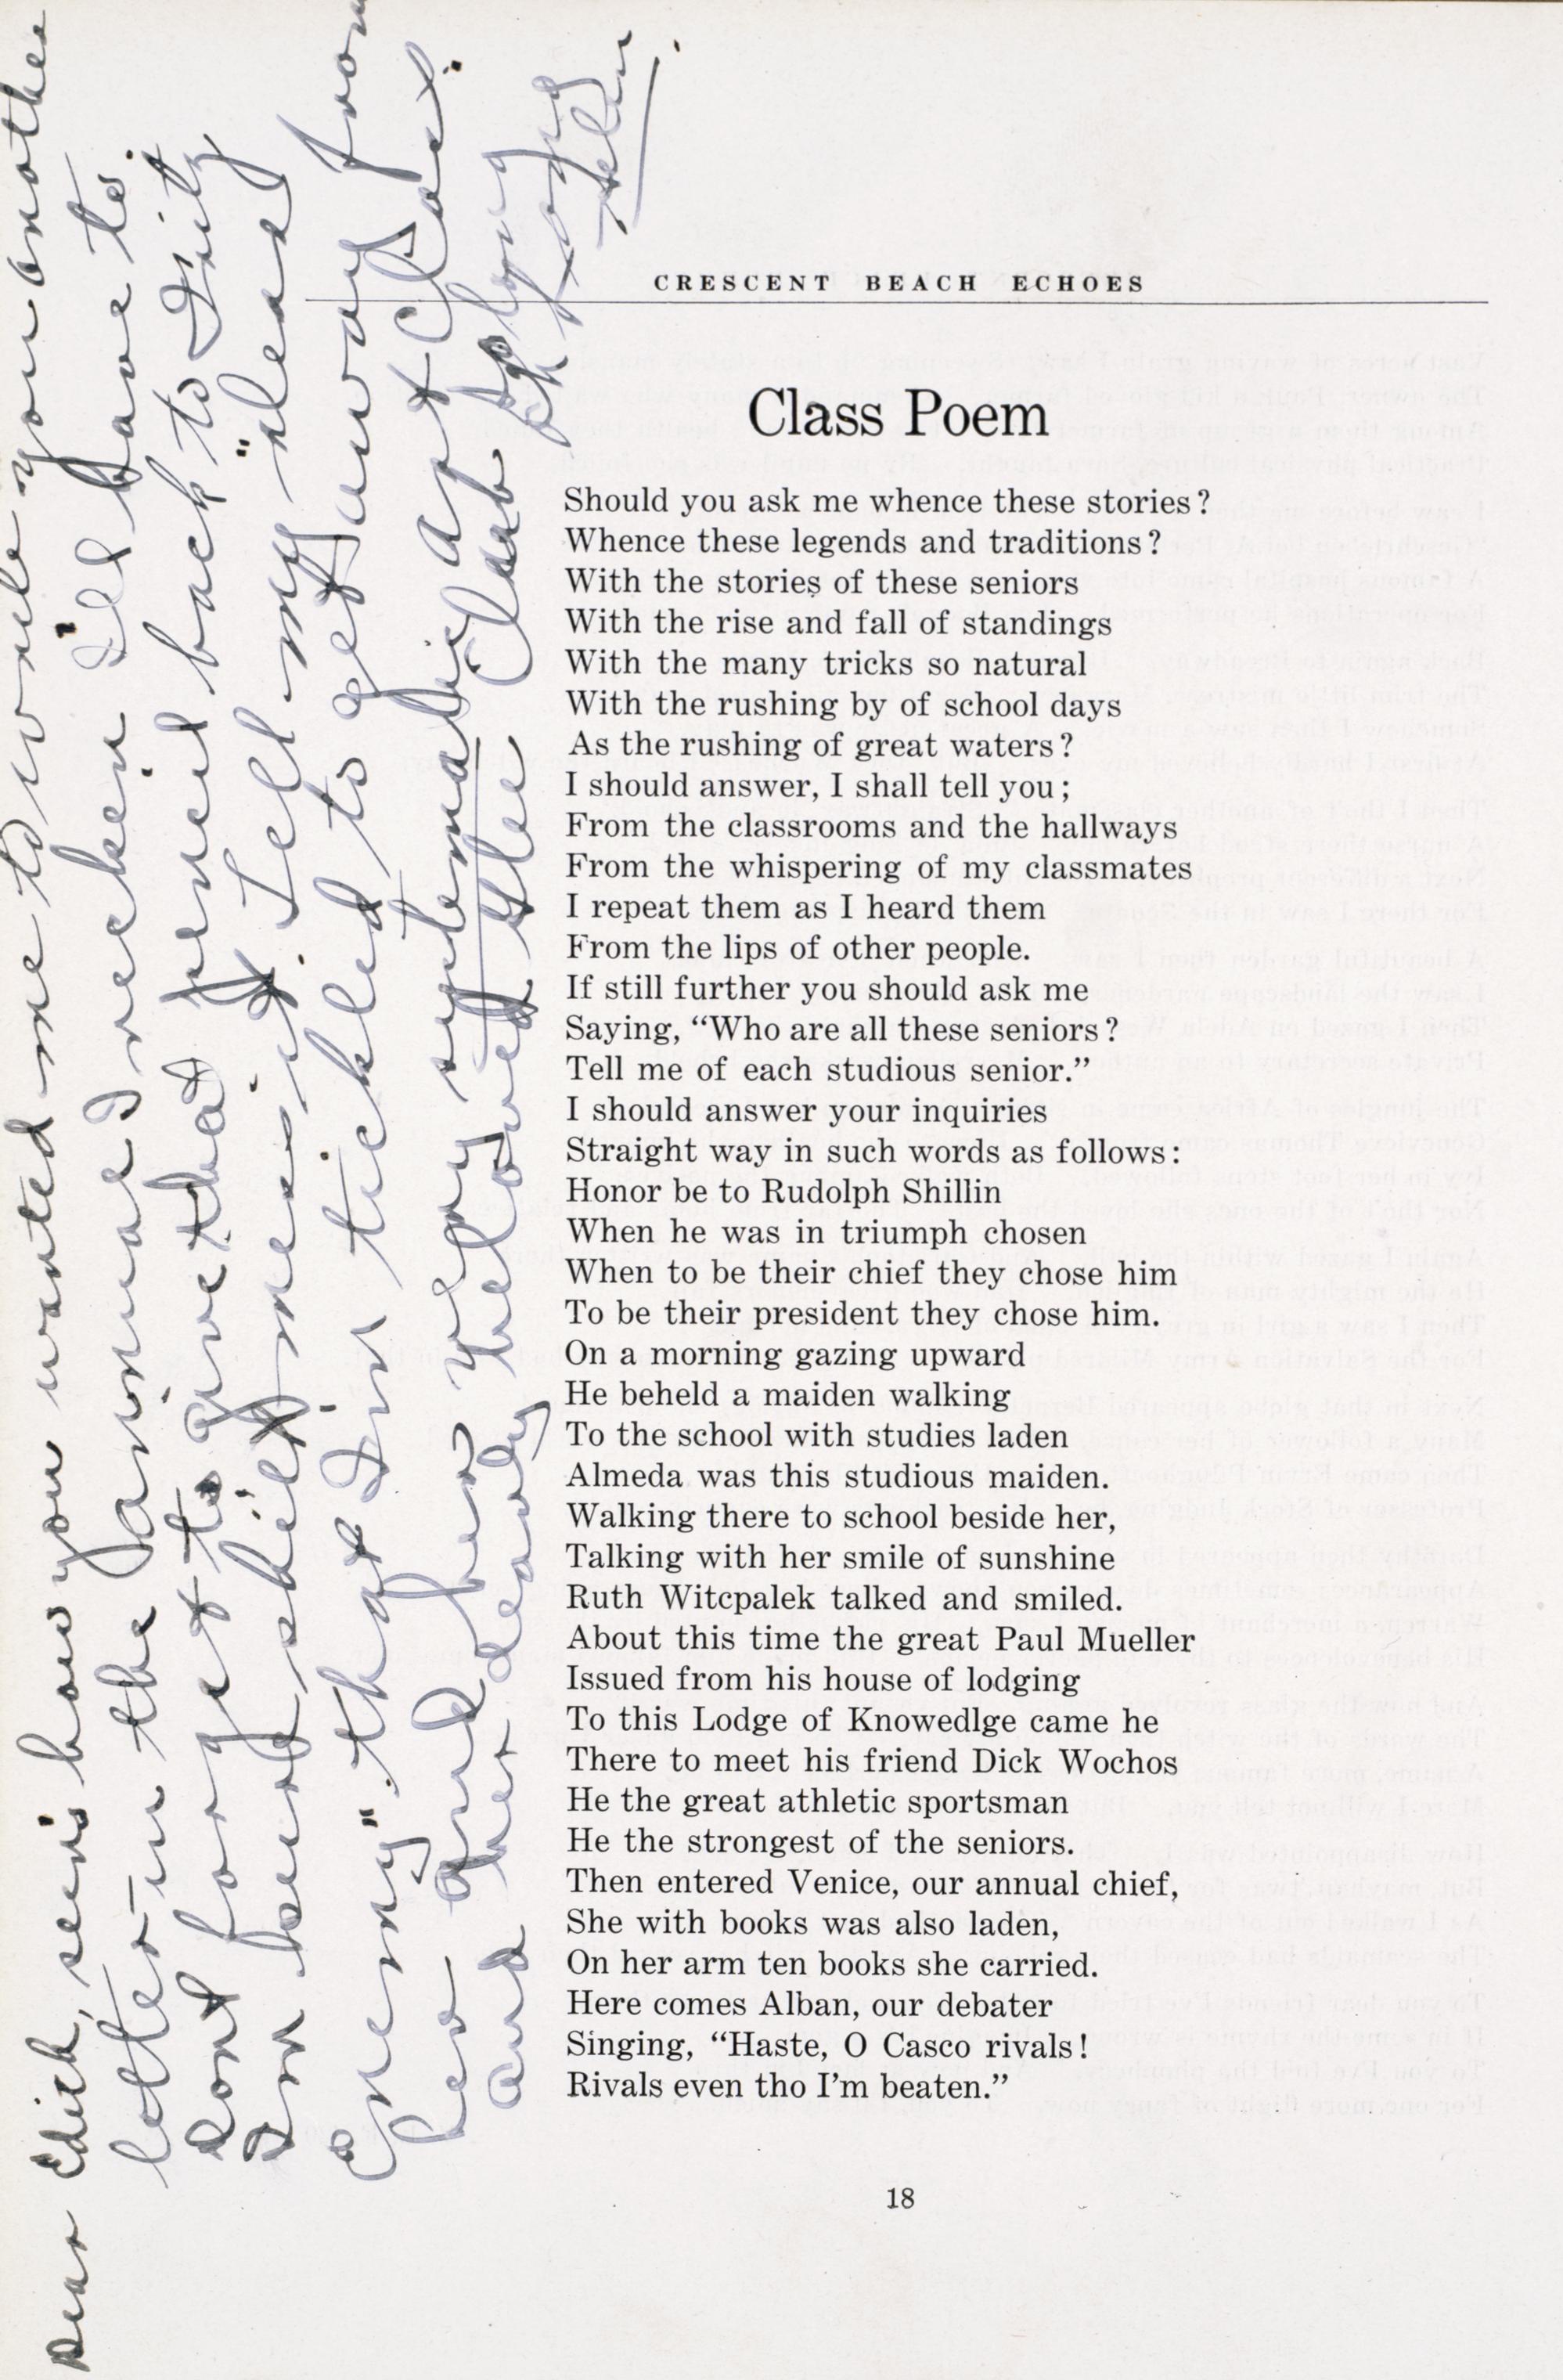 CRESCENT BEACH ECHOES
Class Poem
Should you ask me whence these stories?
Whence these legends and traditions?
With the stories of these seniors
With the rise and fall of standings
With the many tricks so natural
With the rushing by of school days
As the rushing of great waters?
I should answer, I shall tell you;
From the classrooms and the hallways
From the whispering of my classmates
I repeat them as I heard them
From the lips of other people.
If still further you should ask me
Saying, “Who are all these seniors?
Tell me of each studious senior.”
I should answer your inquiries
Straight way in such words as follows:
Honor be to Rudolph Shillin
When he was in triumph chosen
When to be their chief they chose him
To be their president they chose him.
On a morning gazing upward
He beheld a maiden walking
To the school with studies laden
Almeda was this studious maiden.
Walking there to school beside her,
Talking with her smile of sunshine
Ruth Witcpalek talked and smiled.
About this time the great Paul Mueller
Issued from his house of lodging
To this Lodge of Knowedlge came he
There to meet his friend Dick Wochos
He the great athletic sportsman
He the strongest of the seniors.
Then entered Venice, our annual chief,
She with books was also laden,
On her arm ten books she carried.
Here comes Alban, our debater
Singing, “Haste, O Casco rivals!
Rivals even tho I'm beaten.”
18
Dear Edith, seein how you wanted me to write you another
letter in the I reckin I'll have to.
Dont forget to give that pencil back to
I'm beings me it. Tell my "dear
Enemy" that I'm tickled to get away from
her and her systematic art class.
and her dearly beloved Glee Club
so long
Helen